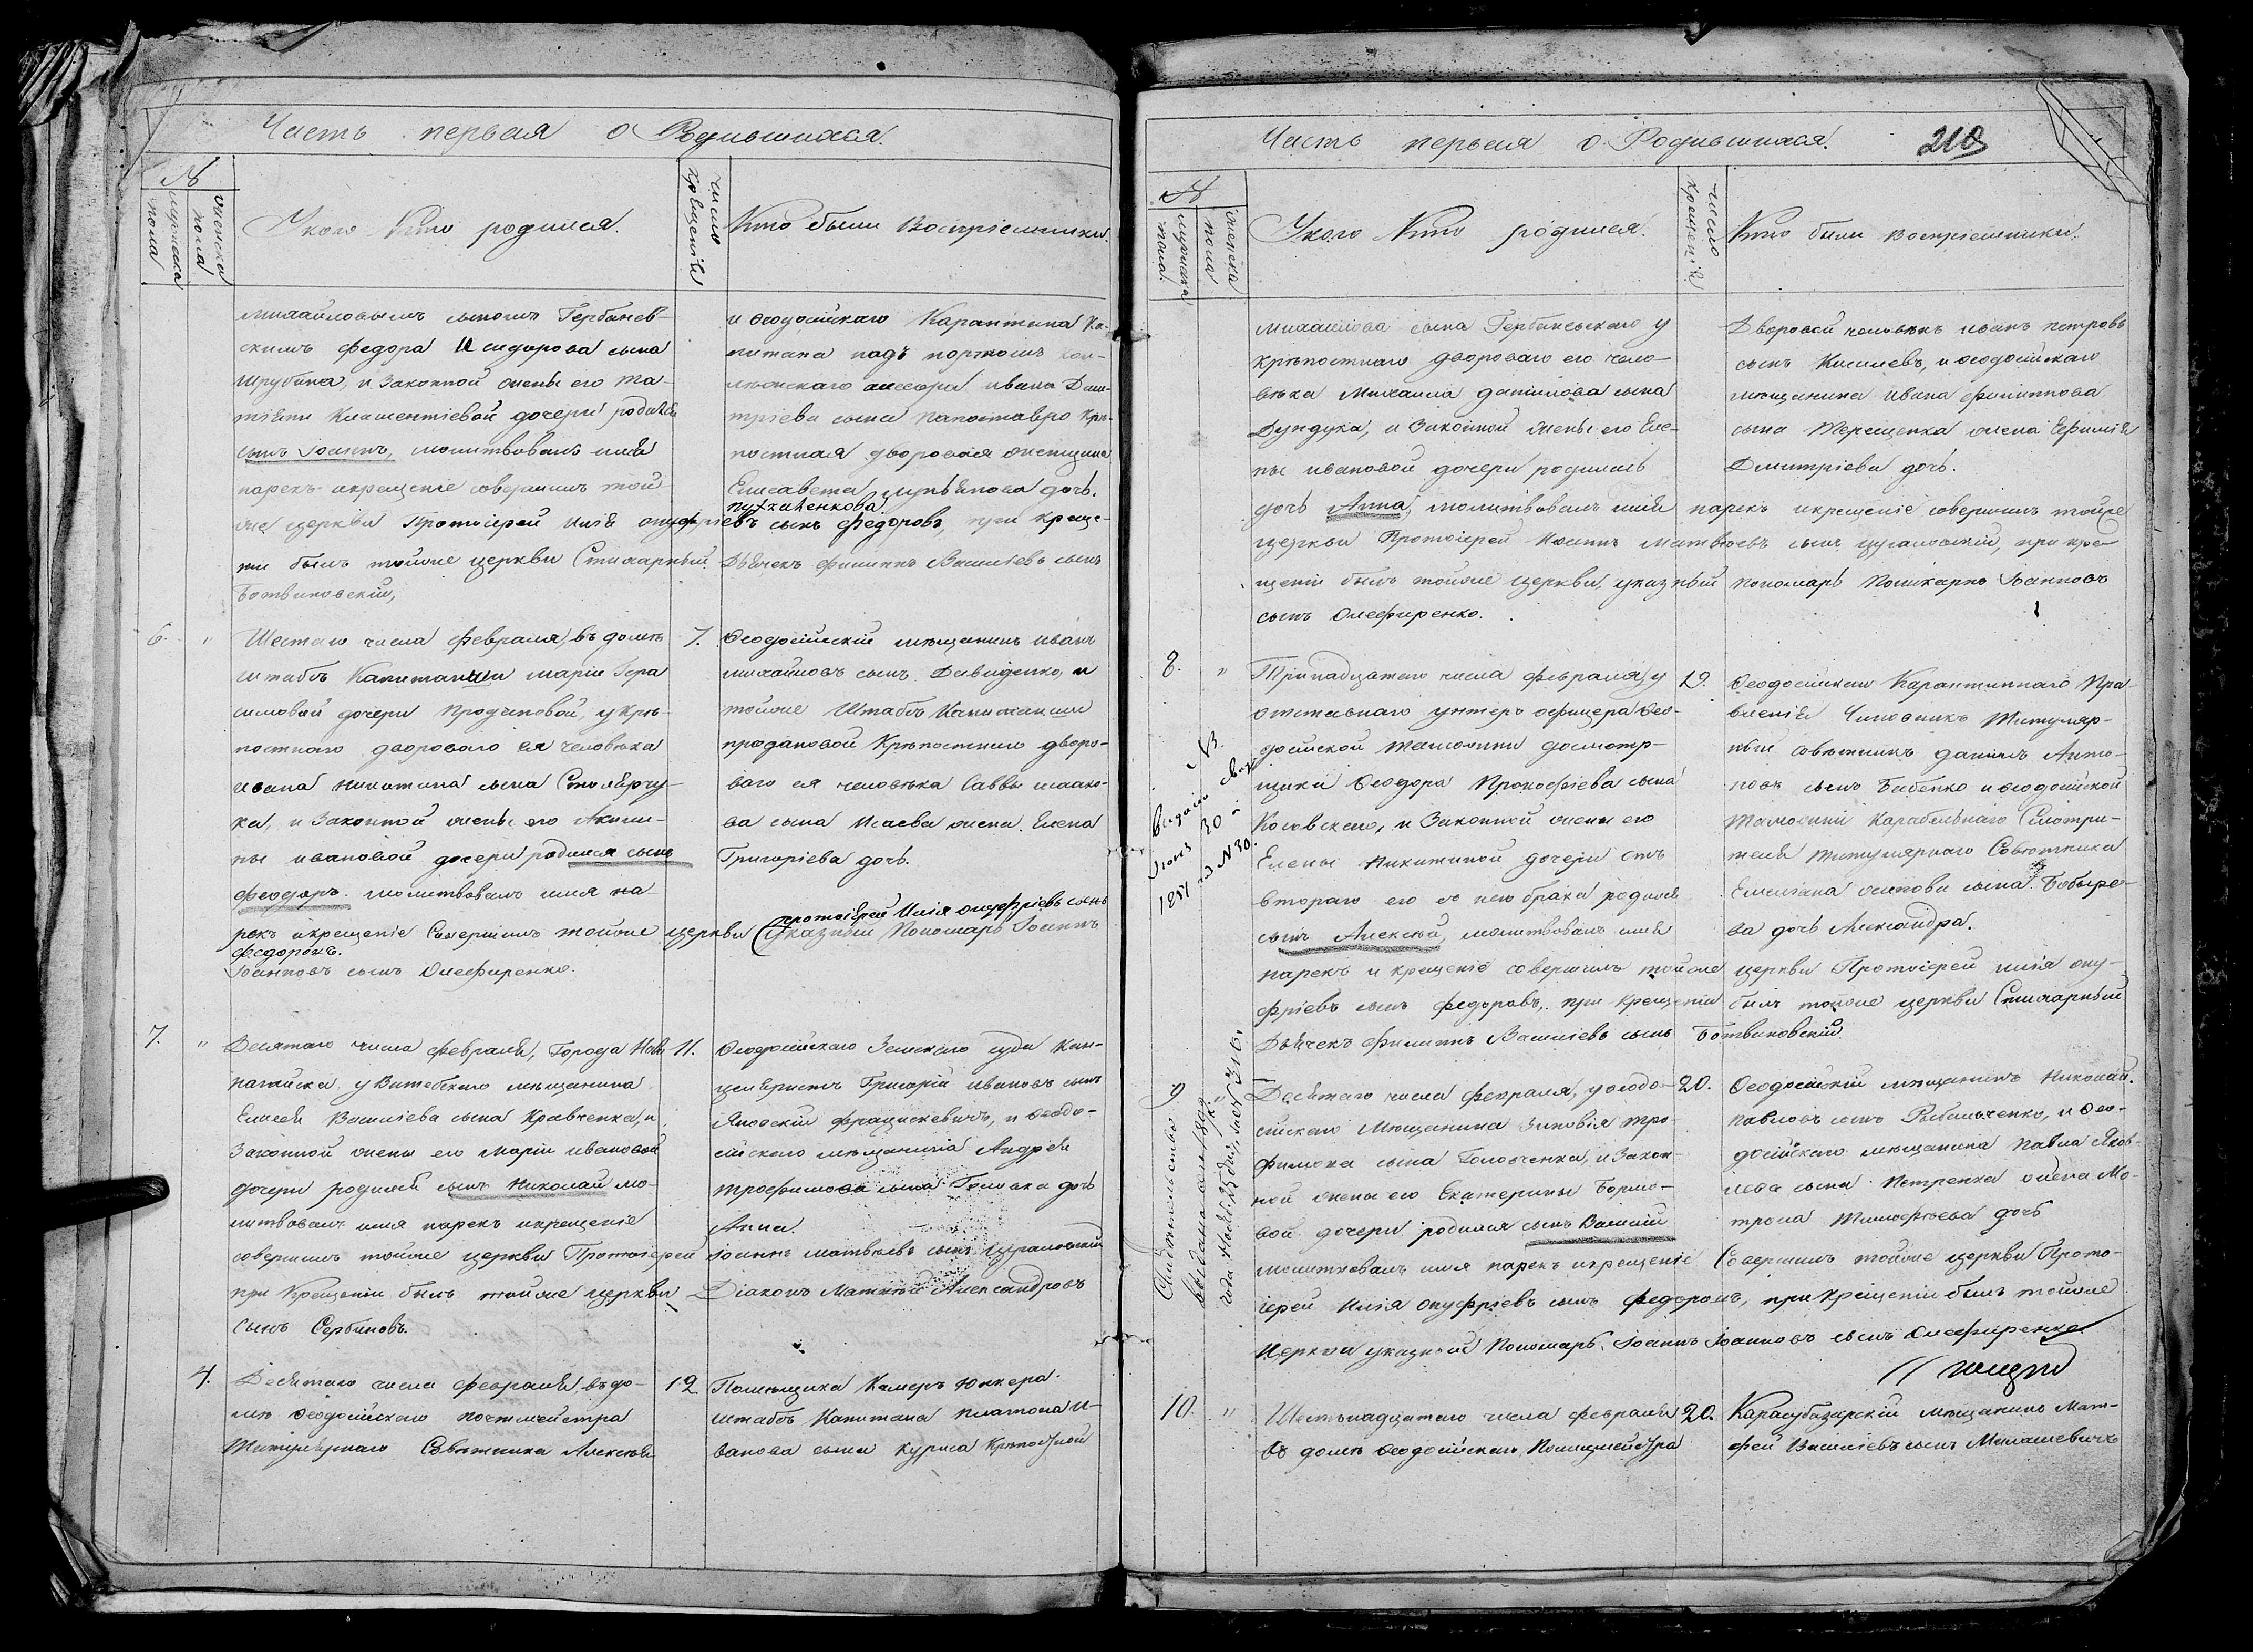 Часть первая о Родившихся.
№
мужеска пола
женска пола
У кого Кто родился.
число крещенія
Кто были Воспріемники.
михайловымъ сыномъ Гербанев-
скимъ федора Исидорова сына
Шрубина, и Законной жены его Та-
тіяны Климентіевой дочери родился
сынъ Іосифъ, молитвовалъ имя
нарекъ и крещеніе совершилъ той
же церкви Протоіерей Илія онуфріевъ сынъ федоровъ, при креще-
ніи былъ тойже церкви Стихарный Дьячекъ филиппъ Василіевъ сынъ
Ботвиновскій,
и Феодосійскаго Карантина Ка-
питана надъ портомъ кол-
лежскаго асессора ивана Дми-
тріева сына Папоставро Крѣ-
постная дворовая женщина
Елисавета лукьянова дочь.
6. "
Шестаго числа февраля, въ домѣ
штабсъ Капитанши маріи Гера
симовой дочери Продановой, у крѣ-
постнаго двороваго ея человѣка
ивана никитина сына Столярчу-
ка, и Законной жены его Акили-
ны ивановой дочери родился сынъ
феодоръ молитвовалъ имя на-
рекъ и крещеніе Совершилъ тойже церкви (протоіерей Илія онуфріевъ сынъ
федоровъ. Указный Пономарь Іоаннъ
Іоанновъ сынъ Олефиренко.
7.
Феодосійскій мѣщанинъ иванъ
михайловъ сынъ Давиденко, и
тойже Штабсъ Капитанши
продановой Крѣпостнаго дворо-
ваго ея человѣка Саввы исаако-
ва сына Исаева жена Елена
Григоріева дочь.
7. "
Десятаго числа февраля, Города Ново
у Витебскаго мѣщанина
Елисея Василіева сына Кравченка, и
Законной жены его Маріи ивановой
дочери родился сынъ Николай мо-
литвовалъ имя нарекъ и крещеніе
совершилъ тойже церкви Протоіерей Іоаннъ матвѣевъ сынъ Цурановскій
при Крещеніи былъ тойже церкви Діаконъ Матвѣй Александровъ
Сынъ Сербиновъ.
11.
Феодосійскаго Земскаго суда Кан-
целяристъ Григорій ивановъ сынъ
Яновскій францискевичъ, и Феодо-
сійскаго мѣщанина Андрея
трофимова сына Головка дочь
Анна.
4.
Десятаго числа февраля, въ до-
мѣ Феодосійскаго почтмейстра
Титулярнаго Совѣтника Алексѣя
12
Помѣщика Камеръ Юнкера
штабсъ Капитана платона и-
ванова сына куриса Крѣпостной
Часть первая о Родившихся.
210
№
мужеска пола.
женска пола
У кого Кто родился.
число крещенія
Кто были воспріемники.
михайлова сына Гербаневскаго у
крѣпостнаго двороваго его чело-
вѣка Михаила данилова сына
Дундука, и Законной жены его Еле-
ны ивановой дочери родилась
дочь Анна, молитвовалъ имя нарекъ и крещеніе совершилъ тойже
церкви Протоіерей Іоаннъ матвѣевъ сынъ цурановскій, при кре-
щеніи былъ тойже церкви, указный пономарь Поликарпъ Іоанновъ
сынъ Олефиренко.
Дворовой человѣкъ иванъ петровъ
сынъ Киселевъ, и феодосійскаго
мѣщанина ивана филиппова
сына Терещенка жена Ефимія
Дмитріева дочь.
8. "
Тринадцатаго числа февраля, у
отставнаго унтеръ офицера Фео-
досійской таможни досмотр-
щика Феодора Прокофіева сына
Косовскаго, и Законной жены его
Елены никитиной дочери отъ
втораго его съ нею брака родился
сынъ Алексѣй, молитвовалъ имя
нарекъ и крещеніе совершилъ тойже церкви Протоіерей илія ону-
фріевъ сынъ федоровъ, при крещеніи былъ тойже церкви Стихарный
Дьячекъ филиппъ Василіевъ сынъ Ботвиновскій.
19.
Феодосійскаго Карантиннаго Пра-
вленія Чиновникъ Титуляр-
ный совѣтникъ даніилъ Анто-
новъ сынъ Бабенко и феодосійской
таможни Карабельнаго Смотри-
теля титулярнаго Совѣтника
Емельяна осипова сына Бобыре-
ва дочь Александра.
9. "
Десятаго числа февраля, у феодо-
сійскаго Мѣщанина Зиновія тро-
фимова сына Головченка, и Закон-
ной жены его Екатерины
вой дочери родился сынъ Василій
молитвовалъ имя нарекъ и крещеніе Совершилъ тойже церкви Прото-
іерей Илія онуфріевъ сынъ федоровъ, при Крещеніи былъ тойже
Церкви указной Пономарь Іоаннъ Іоанновъ сынъ Олефиренко.
20.
Феодосійскій мѣщанинъ Николай
павловъ сынъ Рыбальченко, и Фео-
досійскаго мѣщанина павла Яков-
лева сына Петренка жена Ма-
трона Тимофѣева дочь
10. "
Шестьнадцатаго числа февраля
въ домѣ феодосійскаго Полицмейстра
20.
Карасубазарскій мѣщанинъ Мат-
фей Василіевъ сынъ Милашевичъ